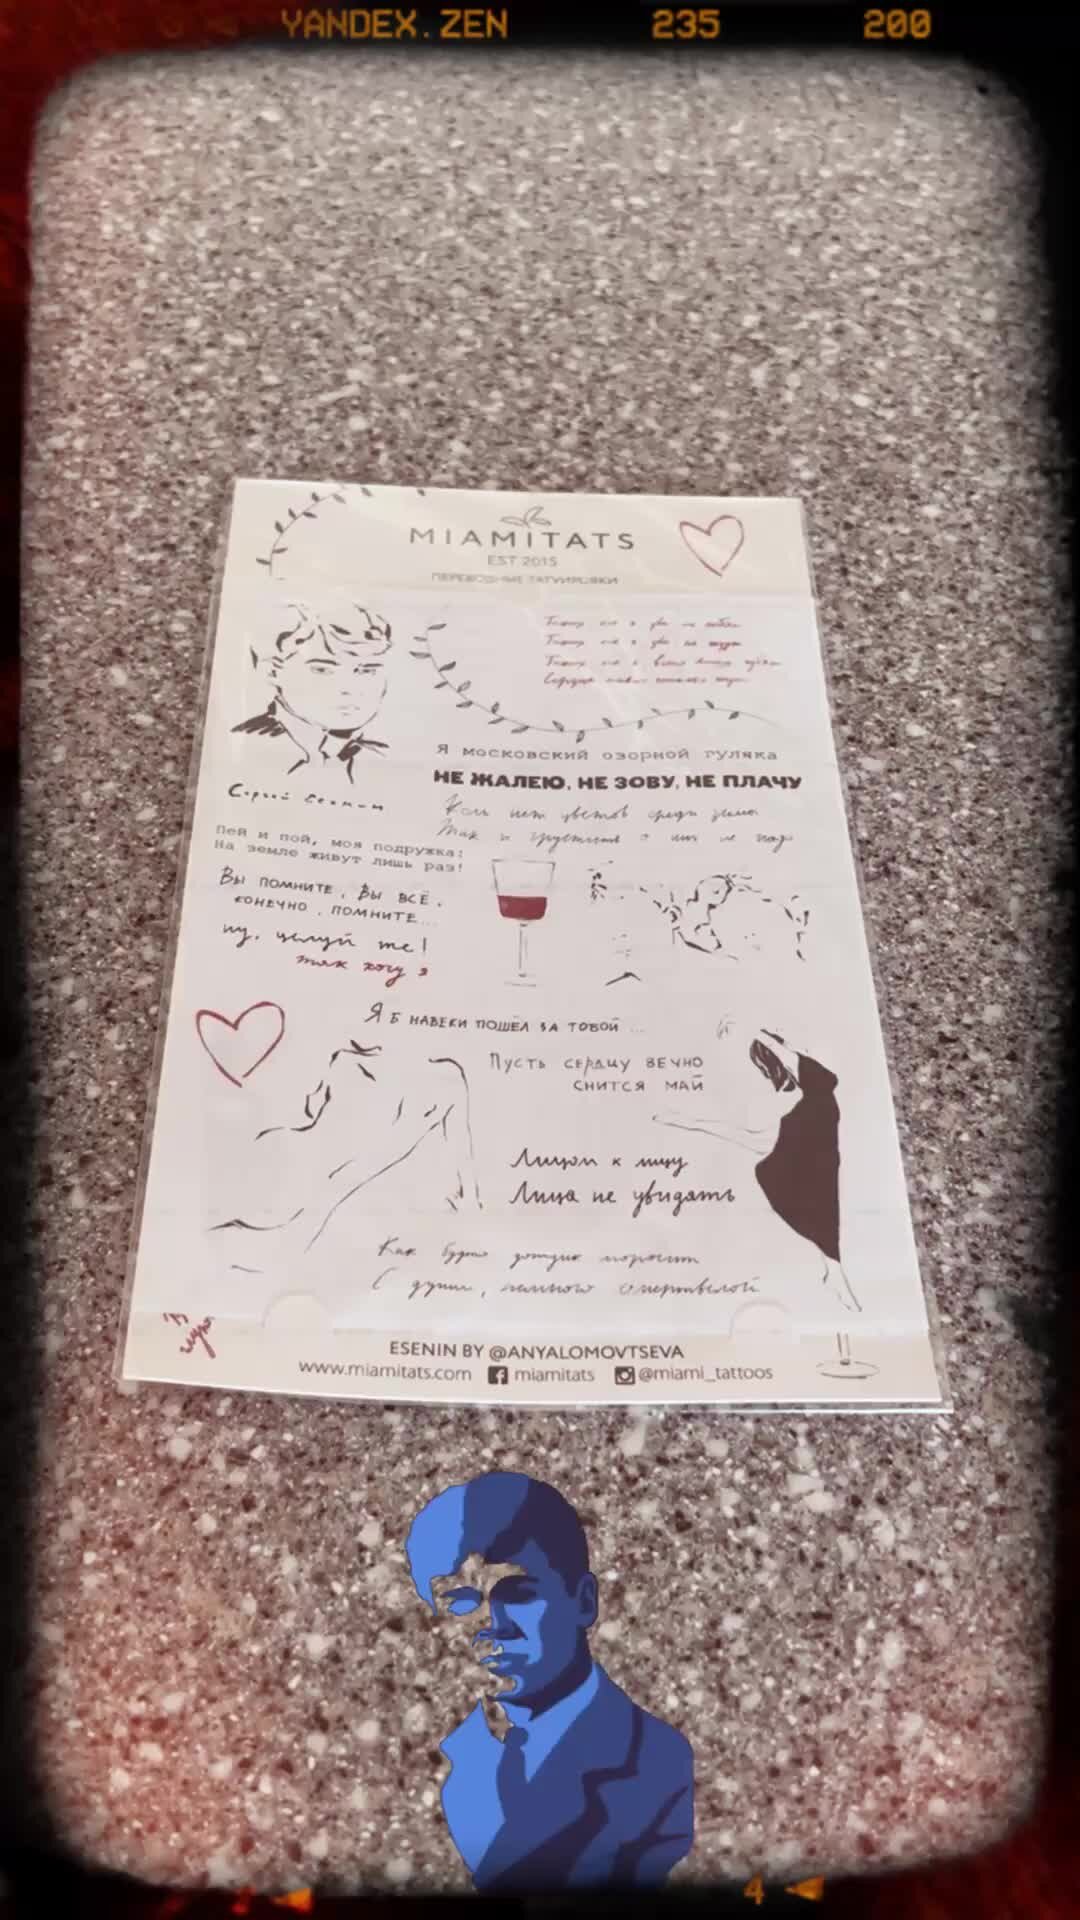 YANDEX.ZEN 235 200
MIAMITATS
EST 2015
ПЕРЕВОДНЫЕ ТАТУИРОВКИ
Я московский озорной гуляка
НЕ ЖАЛЕЮ, НЕ ЗОВУ, НЕ ПЛАЧУ
Сергей Есенин
Коль нет цветов среди зимы
Так и грустить о них не надо
Пей и пой, моя подружка:
На земле живут лишь раз!
Вы помните, Вы всё,
конечно, помните...
ну, целуй же!
так хочу я
Я б навеки пошёл за тобой...
Пусть сердцу вечно
снится май
Лицом к лицу
Лица не увидать
Как будто дождик моросит
С души, немного омертвелой
ESENIN BY @ANYALOMOVTSEVA
www.miamitats.com miamitats @miami_tattoos
4